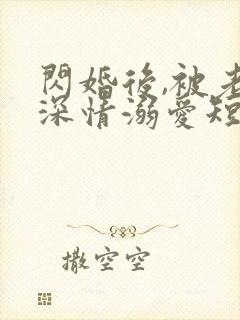 閃婚後,被老
深情溺愛短
撒空空